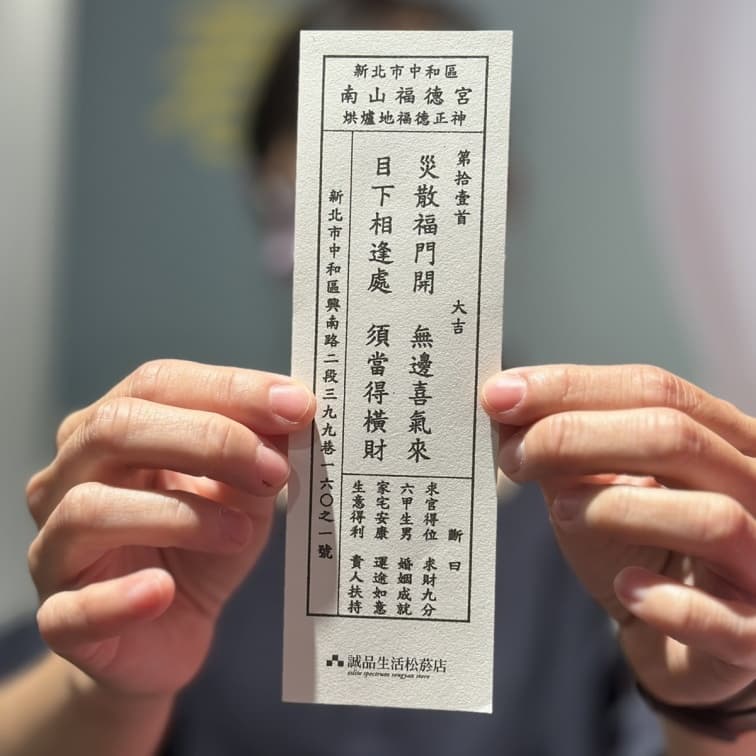 新北市中和區
南山福德宮
烘爐地福德正神
第拾壹首 大吉
災散福門開 無邊喜氣來
目下相逢處 須當得橫財
斷曰
求官得位 求財九分
六甲生男 婚姻成就
家宅安康 運途如意
生意得利 貴人扶持
新北市中和區興南路二段三九九巷一六〇之一號
誠品生活松菸店
eslite spectrum songyan store